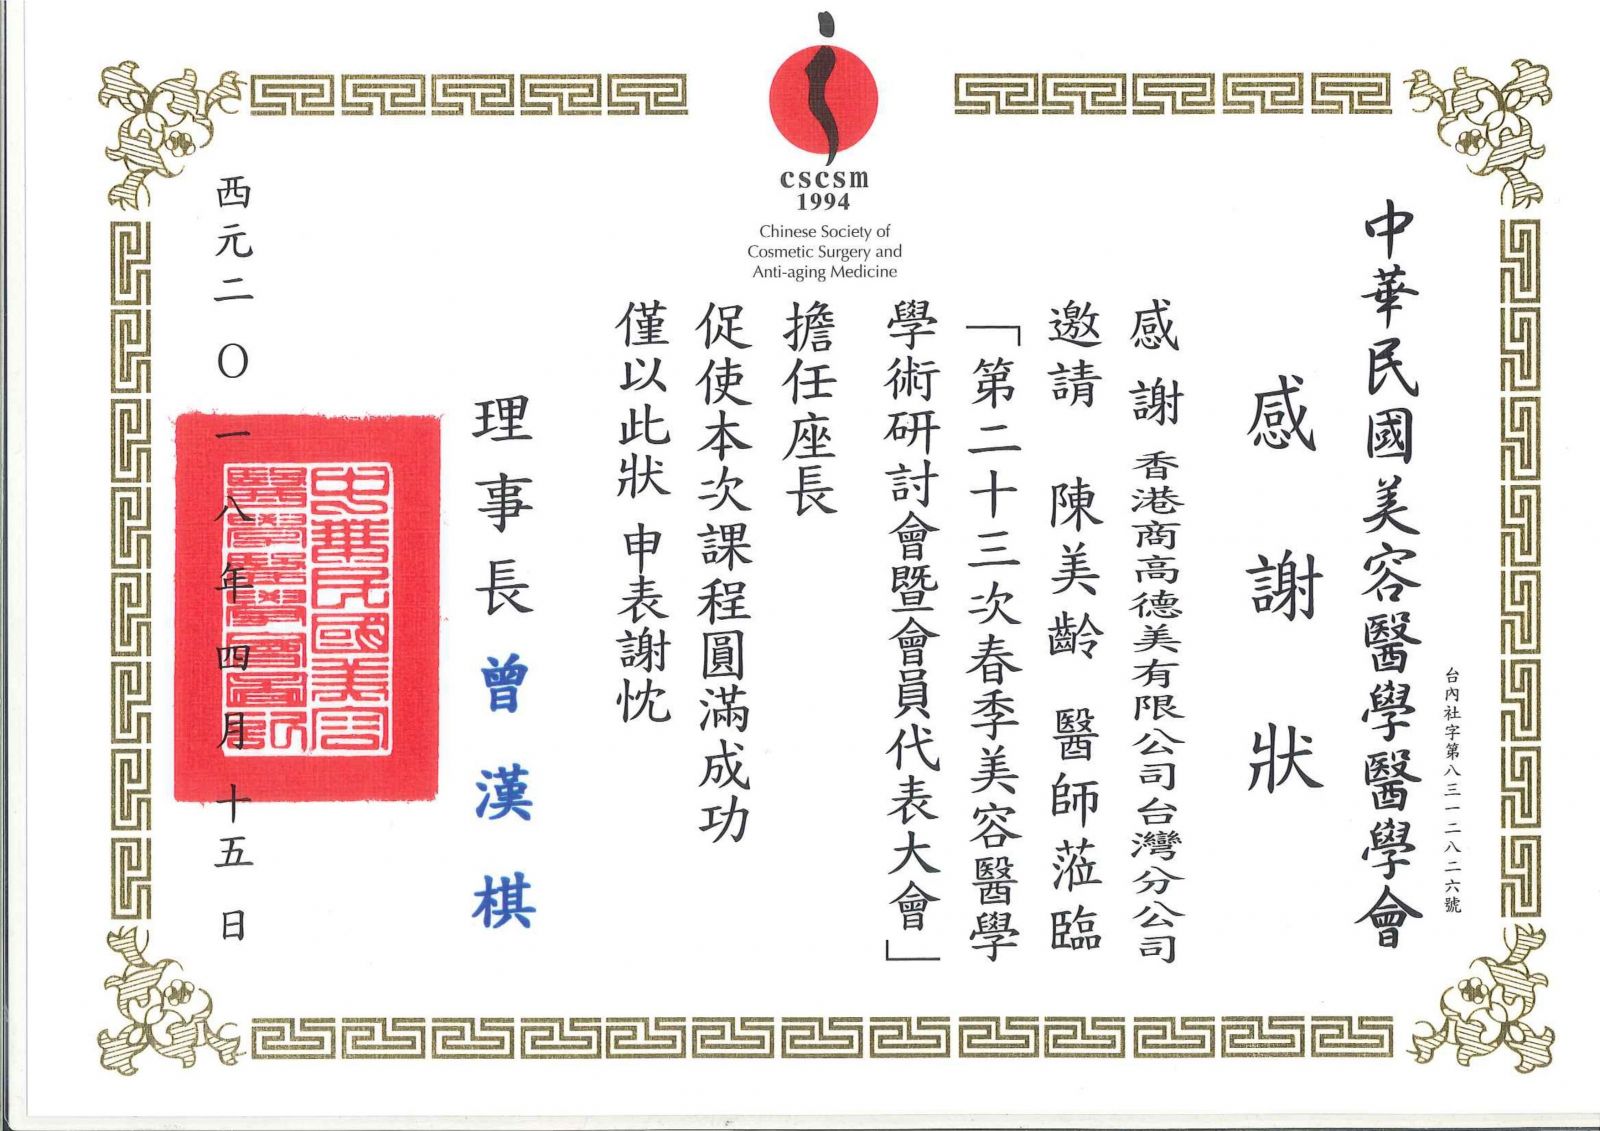 cscsm
1994
Chinese Society of
Cosmetic Surgery and
Anti-aging Medicine
台內社字第八三一二八二六號
中華民國美容醫學醫學會
感謝狀
感謝 香港商高德美有限公司台灣分公司
邀請 陳美齡 醫師蒞臨
「第二十三次春季美容醫學
學術研討會暨會員代表大會」
擔任座長
促使本次課程圓滿成功
僅以此狀 申表謝忱
理事長 曾漢棋
中華民國美容
醫學醫學會
西元二〇一八年四月十五日